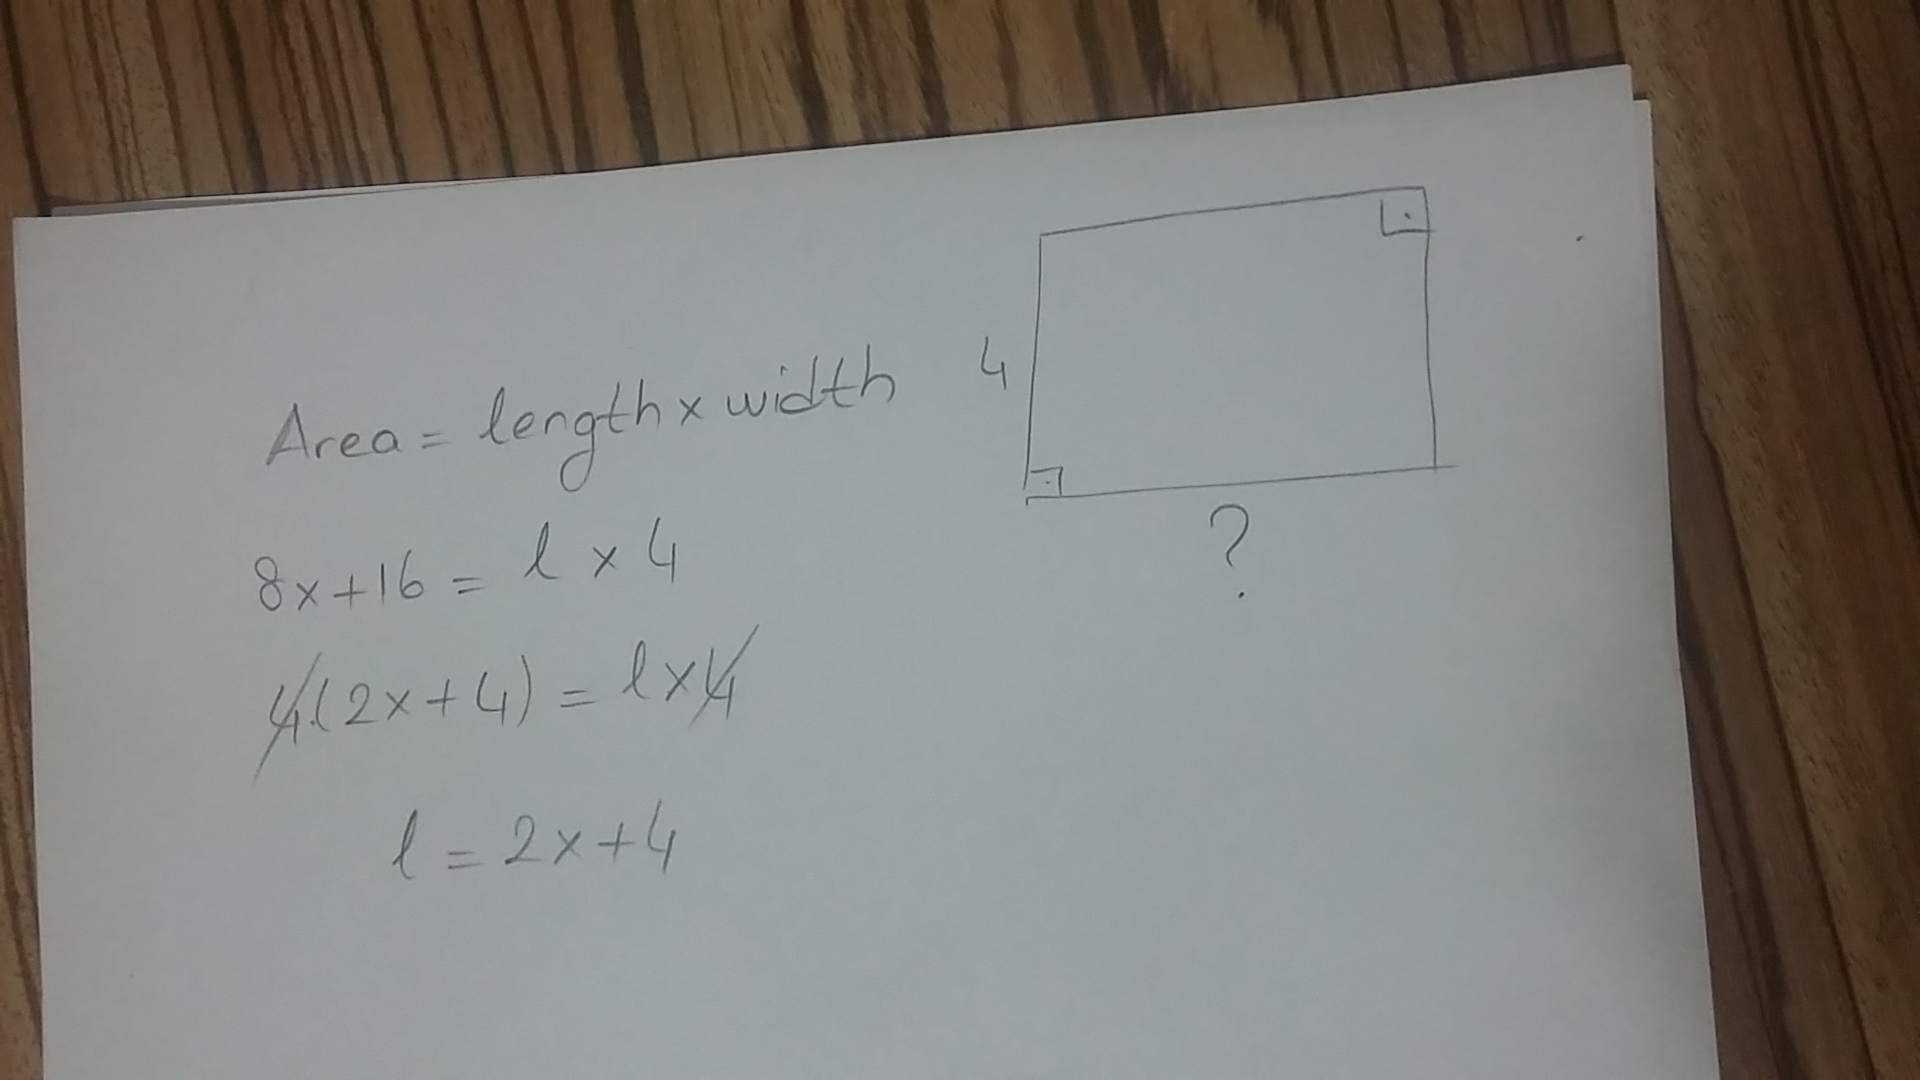 Area = length x width
4
8x+16 = l x 4
?
4.(2x+4) = l x 4
l = 2x+4